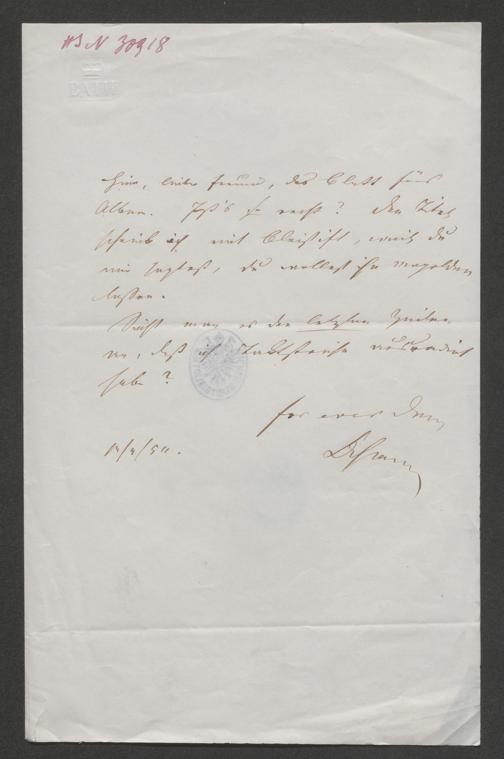 HIN 30918
BATH
Hier, lieber Freund, das Blatt für's
Album. Ist's so recht? Den Titel
schrieb ich mit Bleistift, weil du
mir sagtest, du wollest ihn vergolden
lassen.
Sieht man es den letzten Zeilen
an, daß ich Stahlstriche ausradirt
habe?
for ever Dein